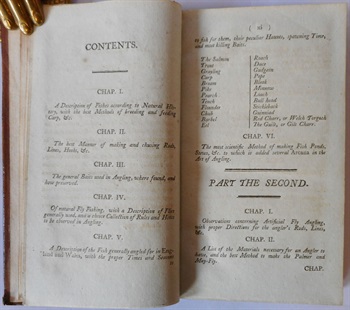 CONTENTS.
CHAP. I.
A Description of Fishes according to Natural History,
with the best Methods of breeding and feeding
Carp, &c.
CHAP. II.
The best Manner of making and chusing Rods,
Lines, Hooks, &c.
CHAP. III.
The general Baits used in Angling, where found, and
how preserved.
CHAP. IV.
Of natural Fly Fishing, with a Description of Flies
generally used, and a choice Collection of Rules and Hints
to be observed in Angling.
CHAP. V.
A Description of the Fish generally angled for in England
and Wales, with the proper Times and Seasons
( xi )
to fish for them, their peculiar Haunts, spawning Time,
and most killing Baits.
The Salmon Roach
Trout Dace
Grayling Gudgeon
Carp Pope
Bream Bleak
Pike Minnow
Pearch Loach
Tench Bull head
Flounder Stickleback
Chub Guiniad
Barbel Red Charr, or Welch Torgoch
Eel The Guilt, or Gilt Charr.
CHAP. VI.
The most scientific Method of making Fish Ponds,
Stews, &c. to which is added several Arcana in the
Art of Angling.
PART THE SECOND.
CHAP. I.
Observations concerning Artificial Fly Angling,
with proper Directions for the angler's Rods, Lines,
&c.
CHAP. II.
A List of the Materials necessary for an Angler to
have, and the best Method to make the Palmer and
May-Fly.
CHAP.